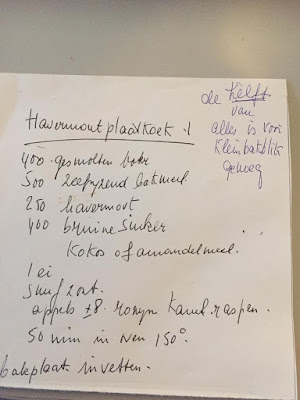 de helft
van
alles is voor
klein bakblik
genoeg
Havermoutplaatkoek .1
400 gesmolten boter
500 zelfrijzend bakmeel
250 havermout
400 bruine suiker
kokos of amandelmeel.
1 ei
snuf zout.
appels ±8. rozijn kaneel. raspen.
50 min in oven 150°.
bakplaat invetten.